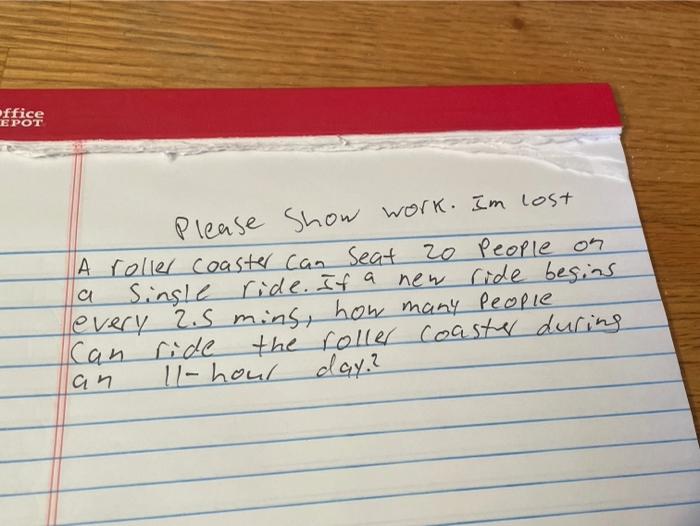 Office
DEPOT
Please Show work. Im lost
A roller coaster can seat 20 people on
a single ride. If a new ride begins
every 2.5 mins, how many people
can ride the roller coaster during
an 11-hour day?